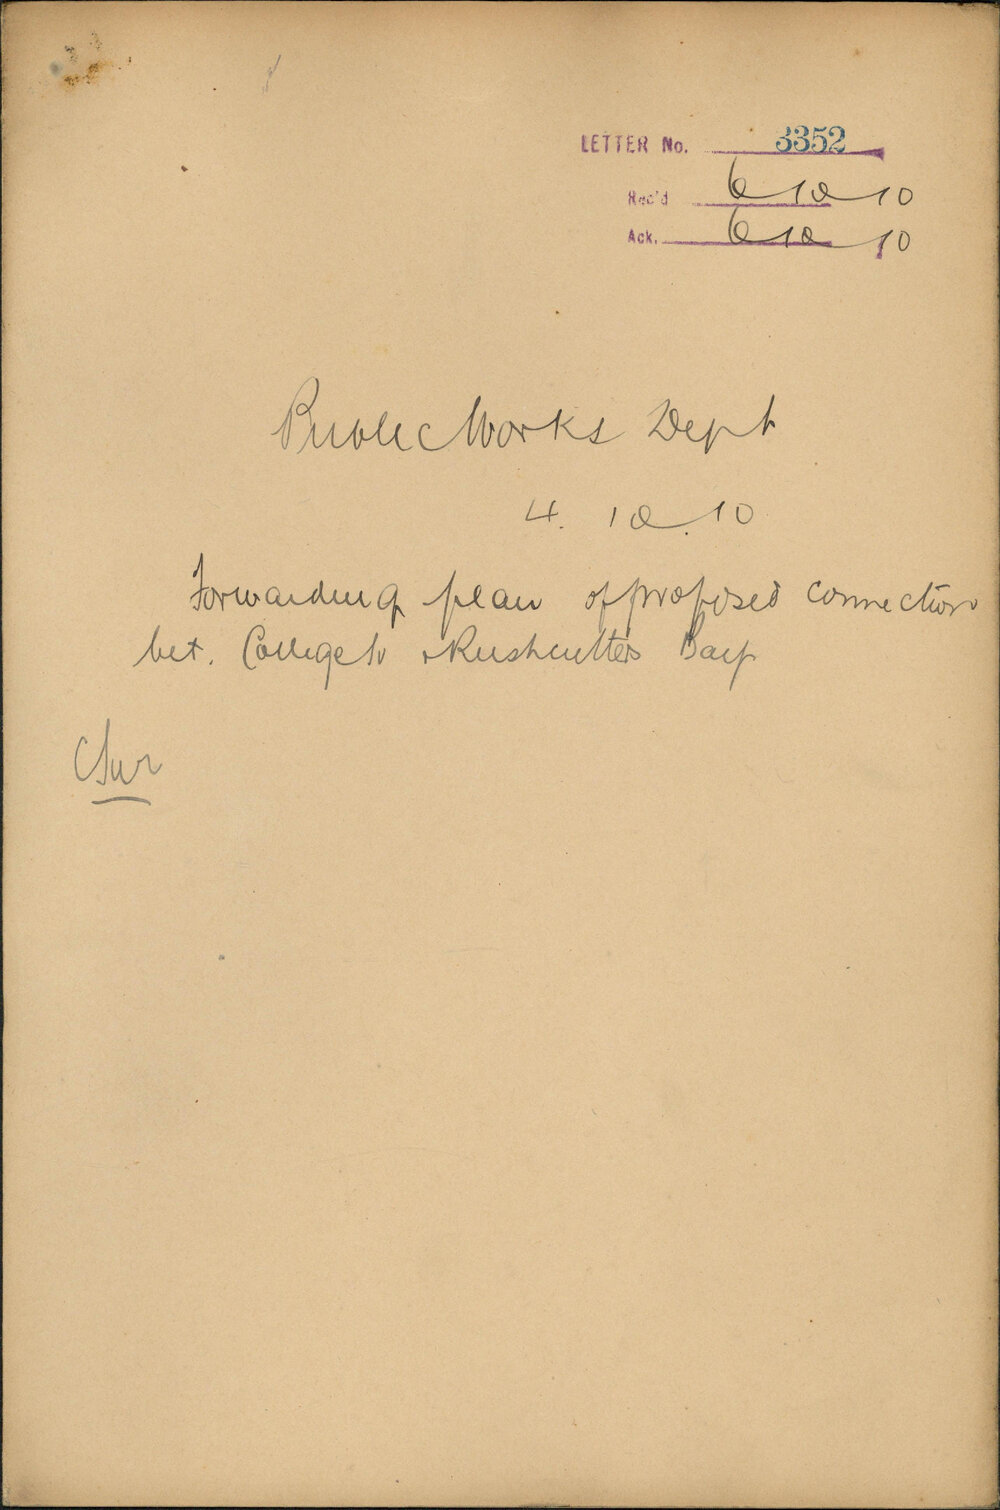 LETTER No. 3352
Rec'd 6 10 10
Ack. 6 10 10
Public Works Dept
4. 10. 10
Forwarding plan of proposed connection
bet. College St & Rushcutters Bay